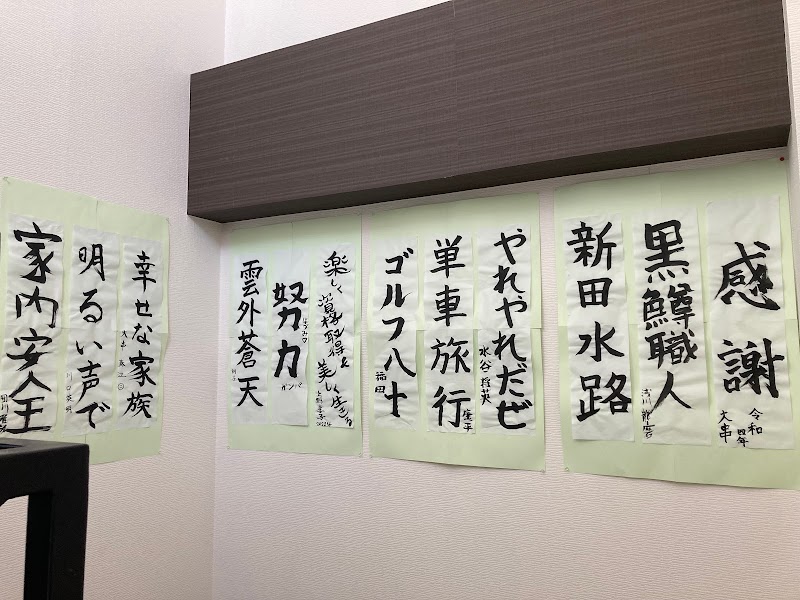 感謝
令和
四年
黒鱒職人
浅川
新田水路
やれやれだぜ
水谷 将英
単車旅行
ゴルフ八十
稲田
楽しく資格取得&
美しく生きる
努力
ガンバ
雲外蒼天
幸せな家族
明るい声で
家内安全